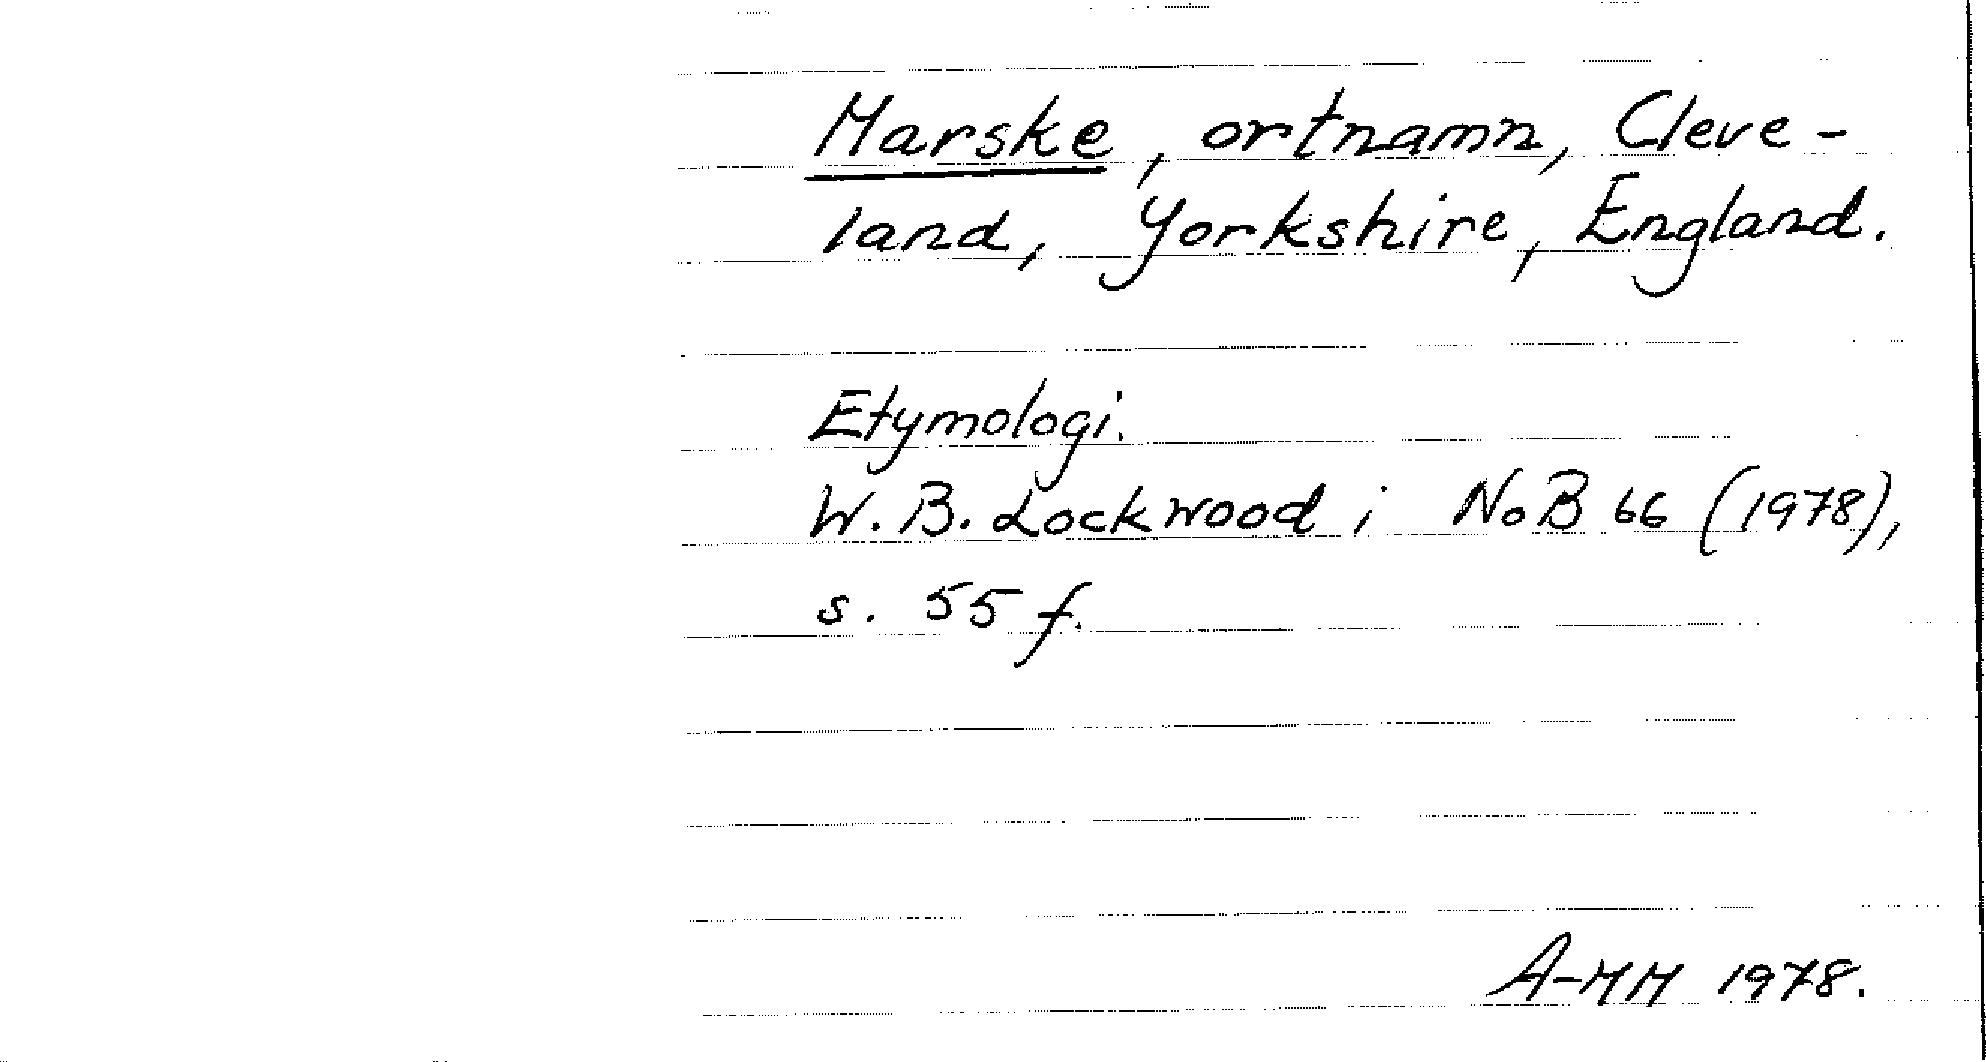 Marske, ortnamn, Cleve-
land, Yorkshire, England.
Etymologi.
W. B. Lockwood i NoB 66 (1978),
s. 55 f.
A-MM 1978.